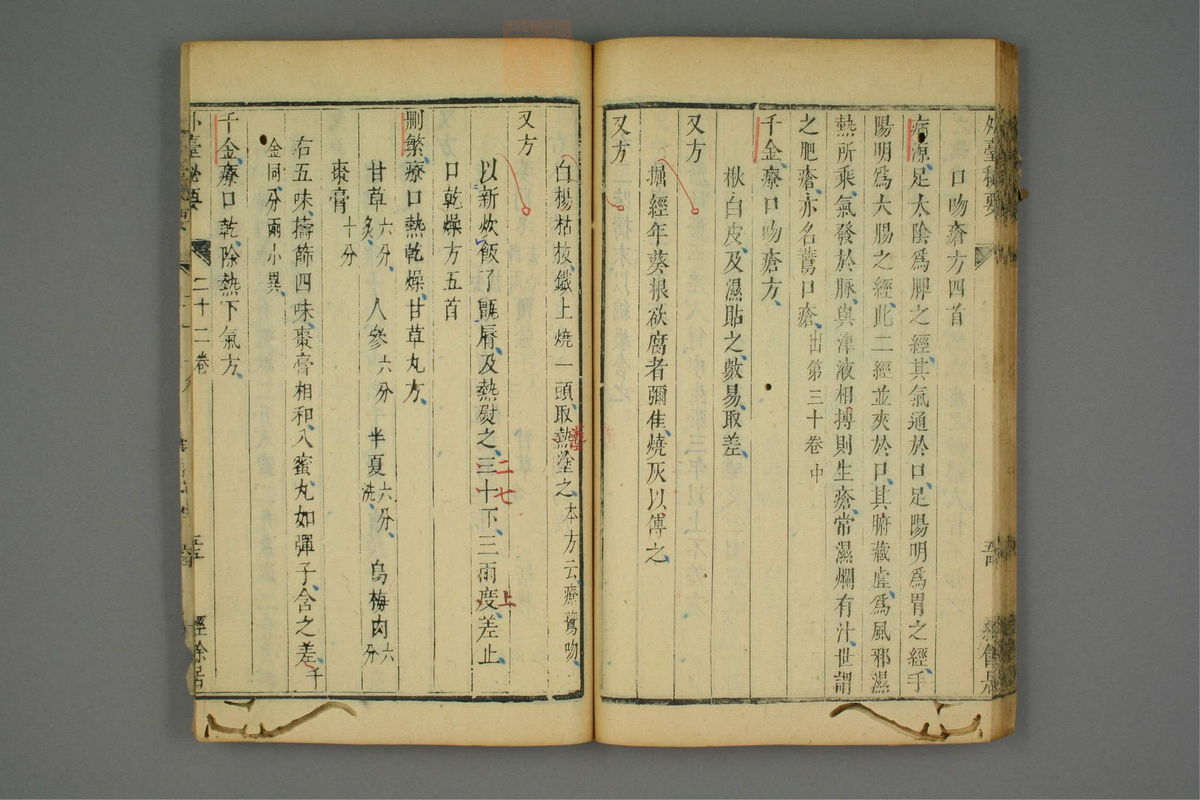 外臺秘要
口吻瘡方四首
病源足太陰爲脾之經其氣通於口足陽明爲胃之經手
陽明爲大腸之經此二經並夾於口其腑藏虛爲風邪濕
熱所乘氣發於脉與津液相搏則生瘡常濕爛有汁世謂
之肥瘡亦名鷰口瘡出第三十卷中
千金療口吻瘡方
楸白皮及濕貼之數易取差
又方
掘經年葵根欲腐者彌佳燒灰以傅之
又方
白楊枯枝鐵上燒一頭取熱塗之本方云療鷰吻
又方
以新炊飯了甑脣及熱熨之三十下三兩度差止
二七
上
口乾燥方五首
刪繁療口熱乾燥甘草丸方
甘草六分炙 人參六分 半夏六分洗 烏梅肉六分
棗膏十分
右五味擣篩四味棗膏相和入蜜丸如彈子含之差千
金同分兩小異
千金療口乾除熱下氣方
外臺秘要
二十二卷
經餘居